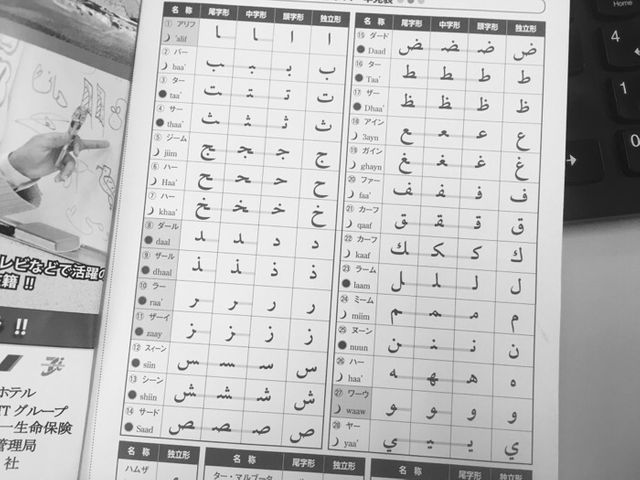 名 称 尾字形 中字形 頭字形 独立形
① アリフ
'alif ـا ـا ا ا
② バー
baa' ـب ـبـ بـ ب
③ ター
taa' ـت ـتـ تـ ت
④ サー
thaa' ـث ـثـ ثـ ث
⑤ ジーム
jiim ـج ـجـ جـ ج
⑥ ハー
Haa' ـح ـحـ حـ ح
⑦ ハー
khaa' ـخ ـخـ خـ خ
⑧ ダール
daal ـد ـد د د
⑨ ザール
dhaal ـذ ـذ ذ ذ
⑩ ラー
raa' ـر ـر ر ر
⑪ ザーイ
zaay ـز ـز ز ز
⑫ スィーン
siin ـس ـسـ سـ س
⑬ シーン
shiin ـش ـشـ شـ ش
⑭ サード
Saad ـص ـصـ صـ ص
名 称 尾字形 中字形 頭字形 独立形
⑮ ダード
Daad ـض ـضـ ضـ ض
⑯ ター
Taa' ـط ـطـ طـ ط
⑰ ザー
Dhaa' ـظ ـظـ ظـ ظ
⑱ アイン
3ayn ـع ـعـ عـ ع
⑲ ガイン
ghayn ـغ ـغـ غـ غ
⑳ ファー
faa' ـف ـفـ فـ ف
㉑ カーフ
qaaf ـق ـقـ قـ ق
㉒ カーフ
kaaf ـك ـكـ كـ ك
㉓ ラーム
laam ـل ـلـ لـ ل
㉔ ミーム
miim ـم ـمـ مـ م
㉕ ヌーン
nuun ـن ـنـ نـ ن
㉖ ハー
haa' ـه ـهـ هـ ه
㉗ ワーウ
waaw ـو ـو و و
㉘ ヤー
yaa' ـي ـيـ يـ ي
名 称 独立形
ハムザ
名 称 尾字形 独立形
ター・マルブータ
名 称 尾字形
レビなどで活躍の
在籍 !!
!!
ホテル
TTグループ
一生命保険
管理局
社
Home
4
1
0